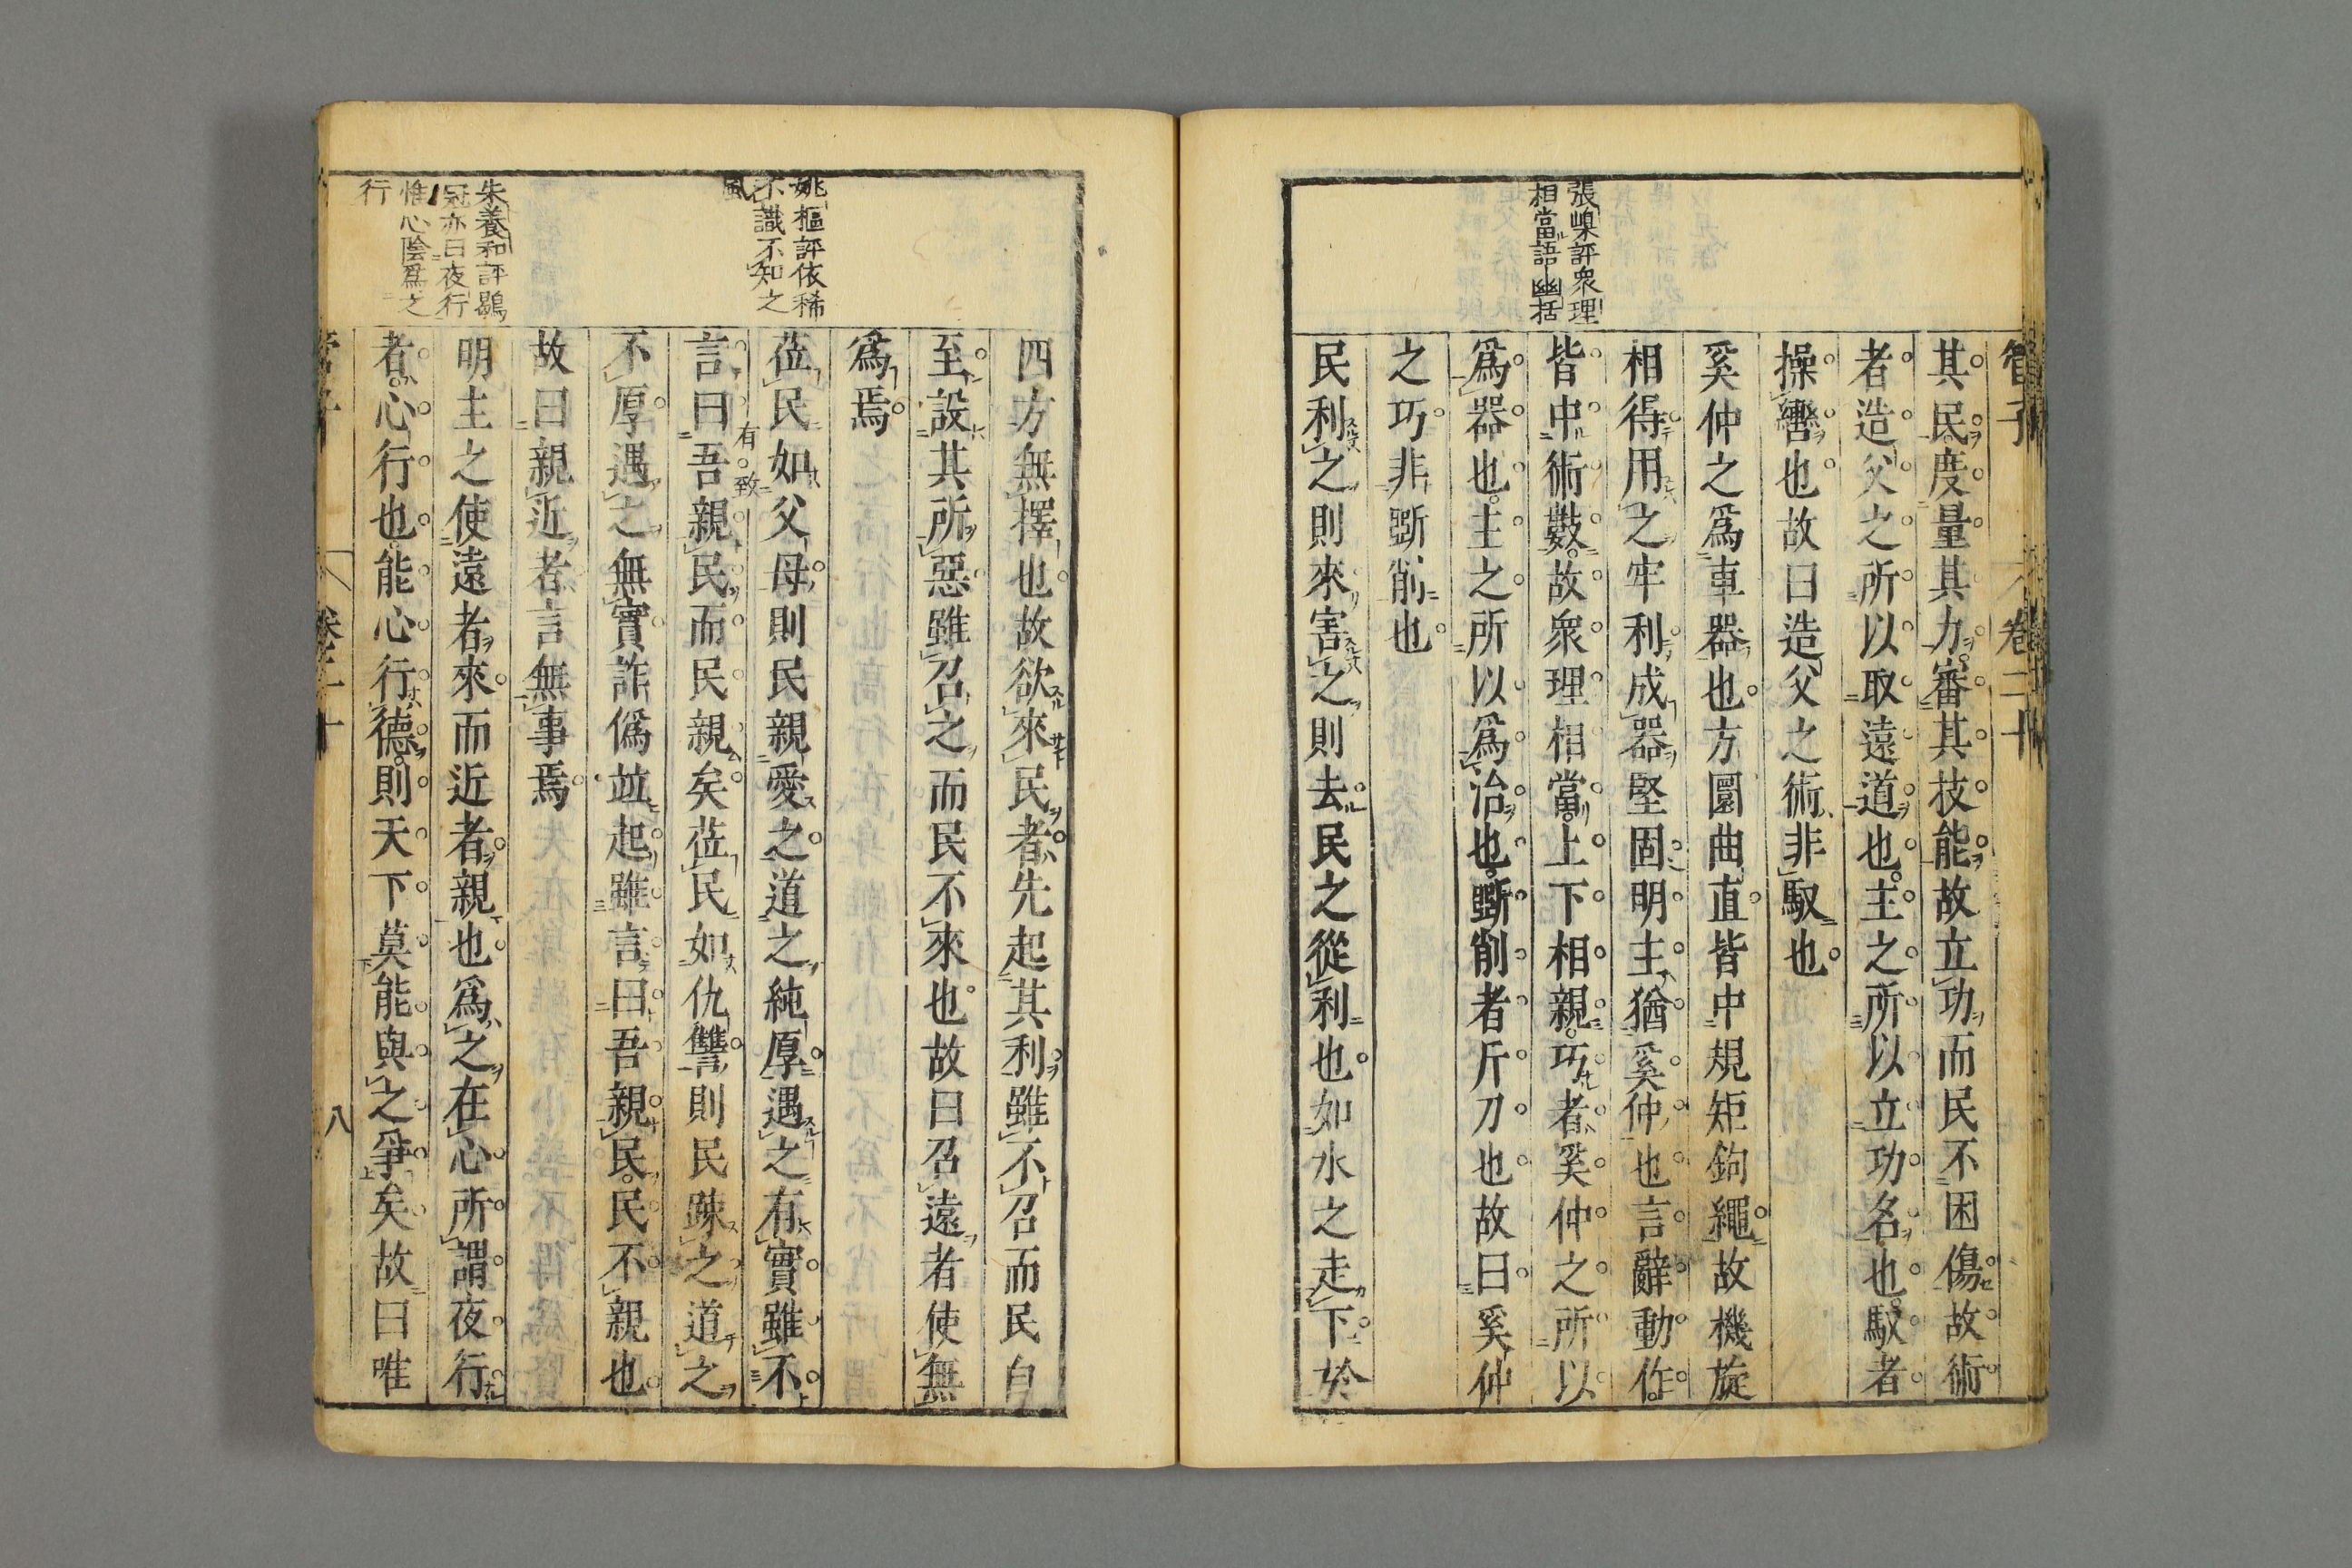 管子
卷二十
其民度量其力審其技能故立功而民不困傷故術
者造父之所以取遠道也主之所以立功名也馭者
操轡也故曰造父之術非馭也
奚仲之爲車器也方圜曲直皆中規矩鉤繩故機旋
相得用之牢利成器堅固明主猶奚仲也言辭動作
皆中術數故衆理相當上下相親巧者奚仲之所以
爲器也主之所以爲治也斲削者斤刀也故曰奚仲
之巧非斲削也
民利之則來害之則去民之從利也如水之走下於
張嵲評衆理
相當語幽括
四方無擇也故欲來民者先起其利雖不召而民自
至設其所惡雖召之而民不來也故曰召遠者使無
爲焉
莅民如父母則民親愛之道之純厚遇之有實雖不
言曰吾親民而民親矣莅民如仇讐則民踈之道之
有致
不厚遇之無實詐僞竝起雖言曰吾親民民不親也
故曰親近者言無事焉
明主之使遠者來而近者親也爲之在心所謂夜行
者心行也能心行德則天下莫能與之爭矣故曰唯
姚樞評依稀
不識不知之
風
朱養和評鶡
冠亦曰夜行
惟心陰爲之
行
管子
卷二十
八